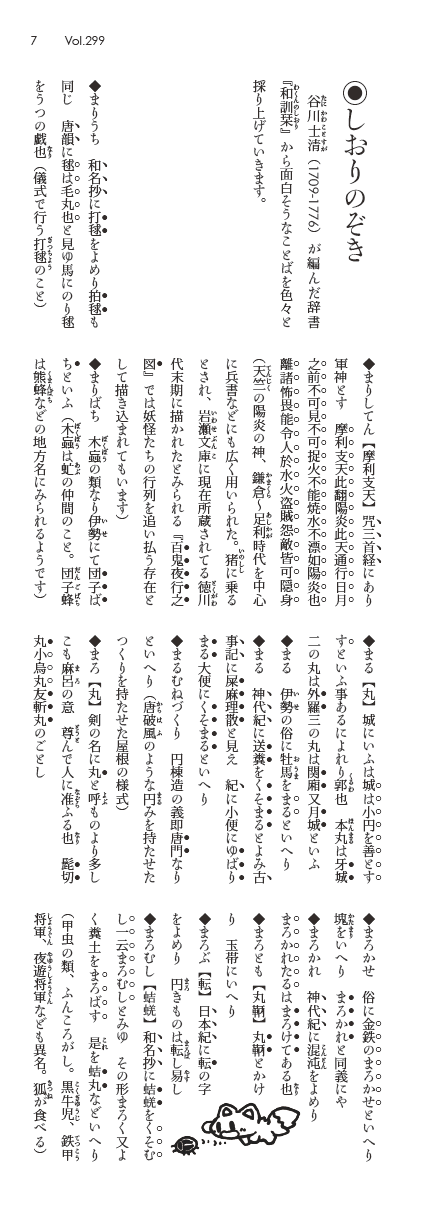 7 Vol.299
◉しおりのぞき
谷川士清（1709-1776）が編んだ辞書
『和訓栞』から面白そうなことばを色々と
採り上げていきます。
◆まりうち　和名抄に打毬をよめり拍毬も
同じ　唐韻に毬は毛丸也と見ゆ馬にのり毬
をうつの戯也（儀式で行う打毬のこと）
◆まりしてん【摩利支天】咒三首経にあり
軍神とす　摩利支天此翻陽炎此天通行日月
之前不可見不可捉火不能焼水不漂如陽炎也
離諸怖畏能令人於水火盗賊怨敵皆可隠身
（天竺の陽炎の神、鎌倉～足利時代を中心
に兵書などにも広く用いられた。猪に乗る
とされ、岩瀬文庫に現在所蔵されてる徳川
代末期に描かれたとみられる『百鬼夜行之
図』では妖怪たちの行列を追い払う存在と
して描き込まれてもいます）
◆まりばち　木蝱の類なり伊勢にて団子ば
ちといふ（木蝱は虻の仲間のこと。団子蜂
は熊蜂などの地方名にみられるようです）
◆まる【丸】城にいふは城は小円を善とす
すといふ事あるによれり郭也　本丸は牙城
二の丸は外羅三の丸は関廂又月城といふ
◆まる　伊勢の俗に牡馬をまるといへり
◆まる　神代紀に送糞をくそまるとよみ古
事記に屎麻理散と見え　紀に小便にゆばり
まる大便にくそまるといへり
◆まるむねづくり　円棟造の義即唐門なり
といへり（唐破風のような円みを持たせた
つくりを持たせた屋根の様式）
◆まろ【丸】剣の名に丸と呼ものより多し
こも麻呂の意　尊んで人に准ふる也　髭切
丸小烏丸友斬丸のごとし
◆まろかせ　俗に金鉄のまろかせといへり
塊をいへり　まろかれと同義にや
◆まろかれ　神代紀に混沌をよめり
まろかれたるはまろけてある也
◆まろとも【丸鞆】丸鞆とかけ
り　玉帯にいへり
◆まろぶ【転】日本紀に転の字
をよめり　円きものは転し易し
◆まろむし【蛣蜣】和名抄に蛣蜣をくそむ
し一云まろむしとみゆ　その形まろく又よ
く糞土をまろばす　是を蛣丸などいへり
（甲虫の類、ふんころがし。黒牛児、鉄甲
将軍、夜遊将軍なども異名。狐が食べる）